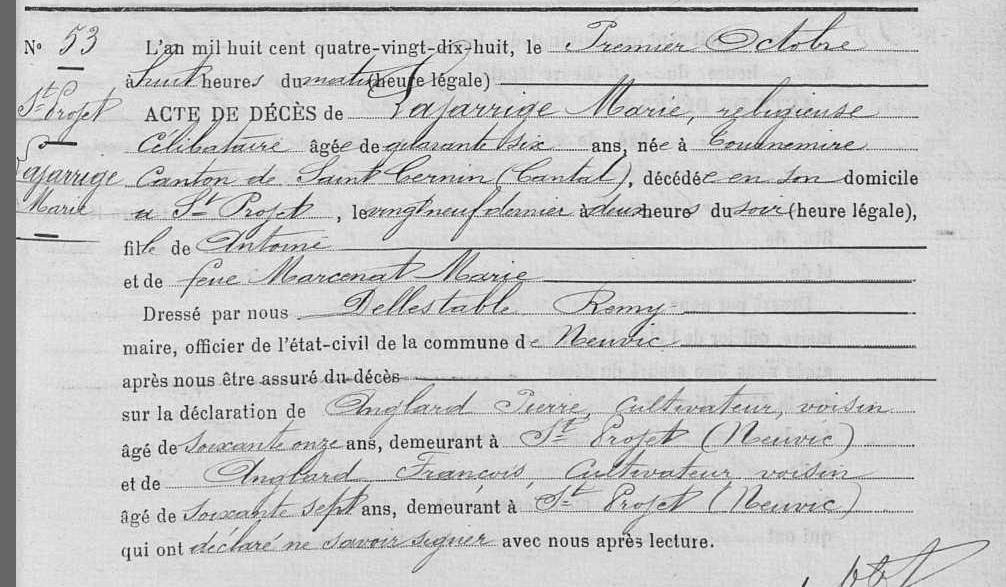 N° 53 L'an mil huit cent quatre-vingt-dix-huit, le Premier Octobre
à huit heures du matin (heure légale)
St Projet ACTE DE DÉCÈS de Lajarrige Marie, religieuse
Célibataire âgée de quarante six ans, née à Tournemire
Lajarrige Canton de Saint Cernin (Cantal), décédée en son domicile
Marie a St Projet, le vingt neuf dernier à deux heures du soir (heure légale),
fille de Antoine
et de feue Marcenat Marie
Dressé par nous Dellestable Remy
maire, officier de l'état-civil de la commune de Neuvic
après nous être assuré du décès
sur la déclaration de Anglard Pierre, cultivateur, voisin
âgé de soixante onze ans, demeurant à St Projet (Neuvic)
et de Anglard François, cultivateur, voisin
âgé de soixante sept ans, demeurant à St Projet (Neuvic)
qui ont déclaré ne savoir signer avec nous après lecture.